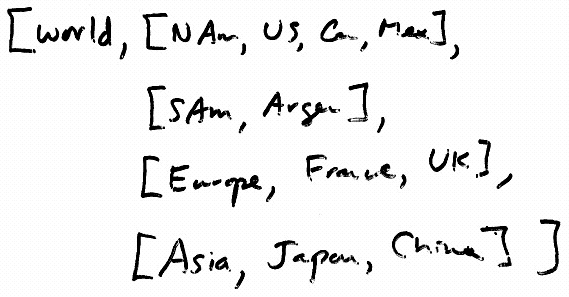 [World, [NAm, US, Can, Mex],
[SAm, Argen],
[Europe, France, UK],
[Asia, Japan, China] ]